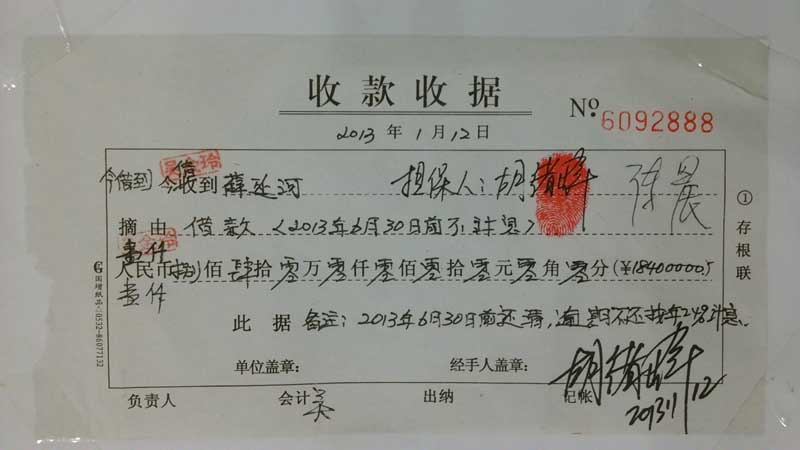 收款收据
№ 6092888
2013年1月12日
今借到 今借收到薛延河 担保人：胡
摘由 借款（2013年6月30日前不计息）
人民币 佰肆拾零万零仟零佰零拾零元零角零分（¥18400000）
此据 备注：2013年6月30日前还清，逾期不还按年24%计息。
单位盖章： 经手人盖章：
负责人 会计 吴 出纳 记帐 胡
2013 1/12
① 存根联
国增纸品：0532-86077132